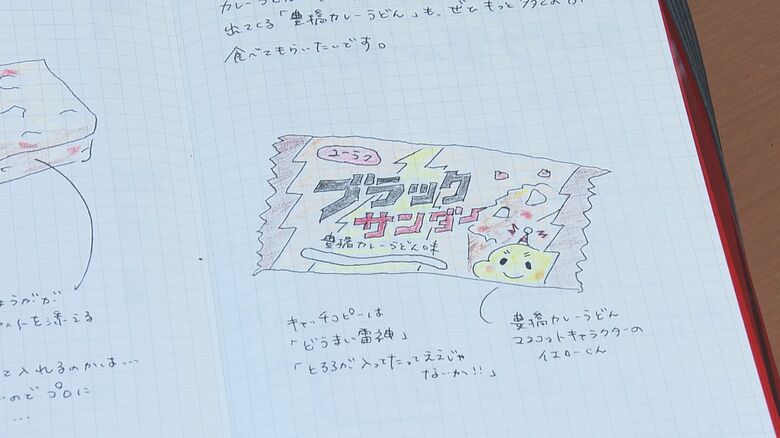 カレーうどん
出てくる「豊橋カレーうどん」も、ぜひもっと
食べてもらいたいです。
ユーラク
ブラック
サンダー
豊橋カレーうどん味
キャッチコピーは
「どうまい雷神」
「とろろが入ってたってええじゃ
ないか!!」
豊橋カレーうどん
マスコットキャラクターの
イエローくん
を添える
て入れるのかは…
のでプロに
…